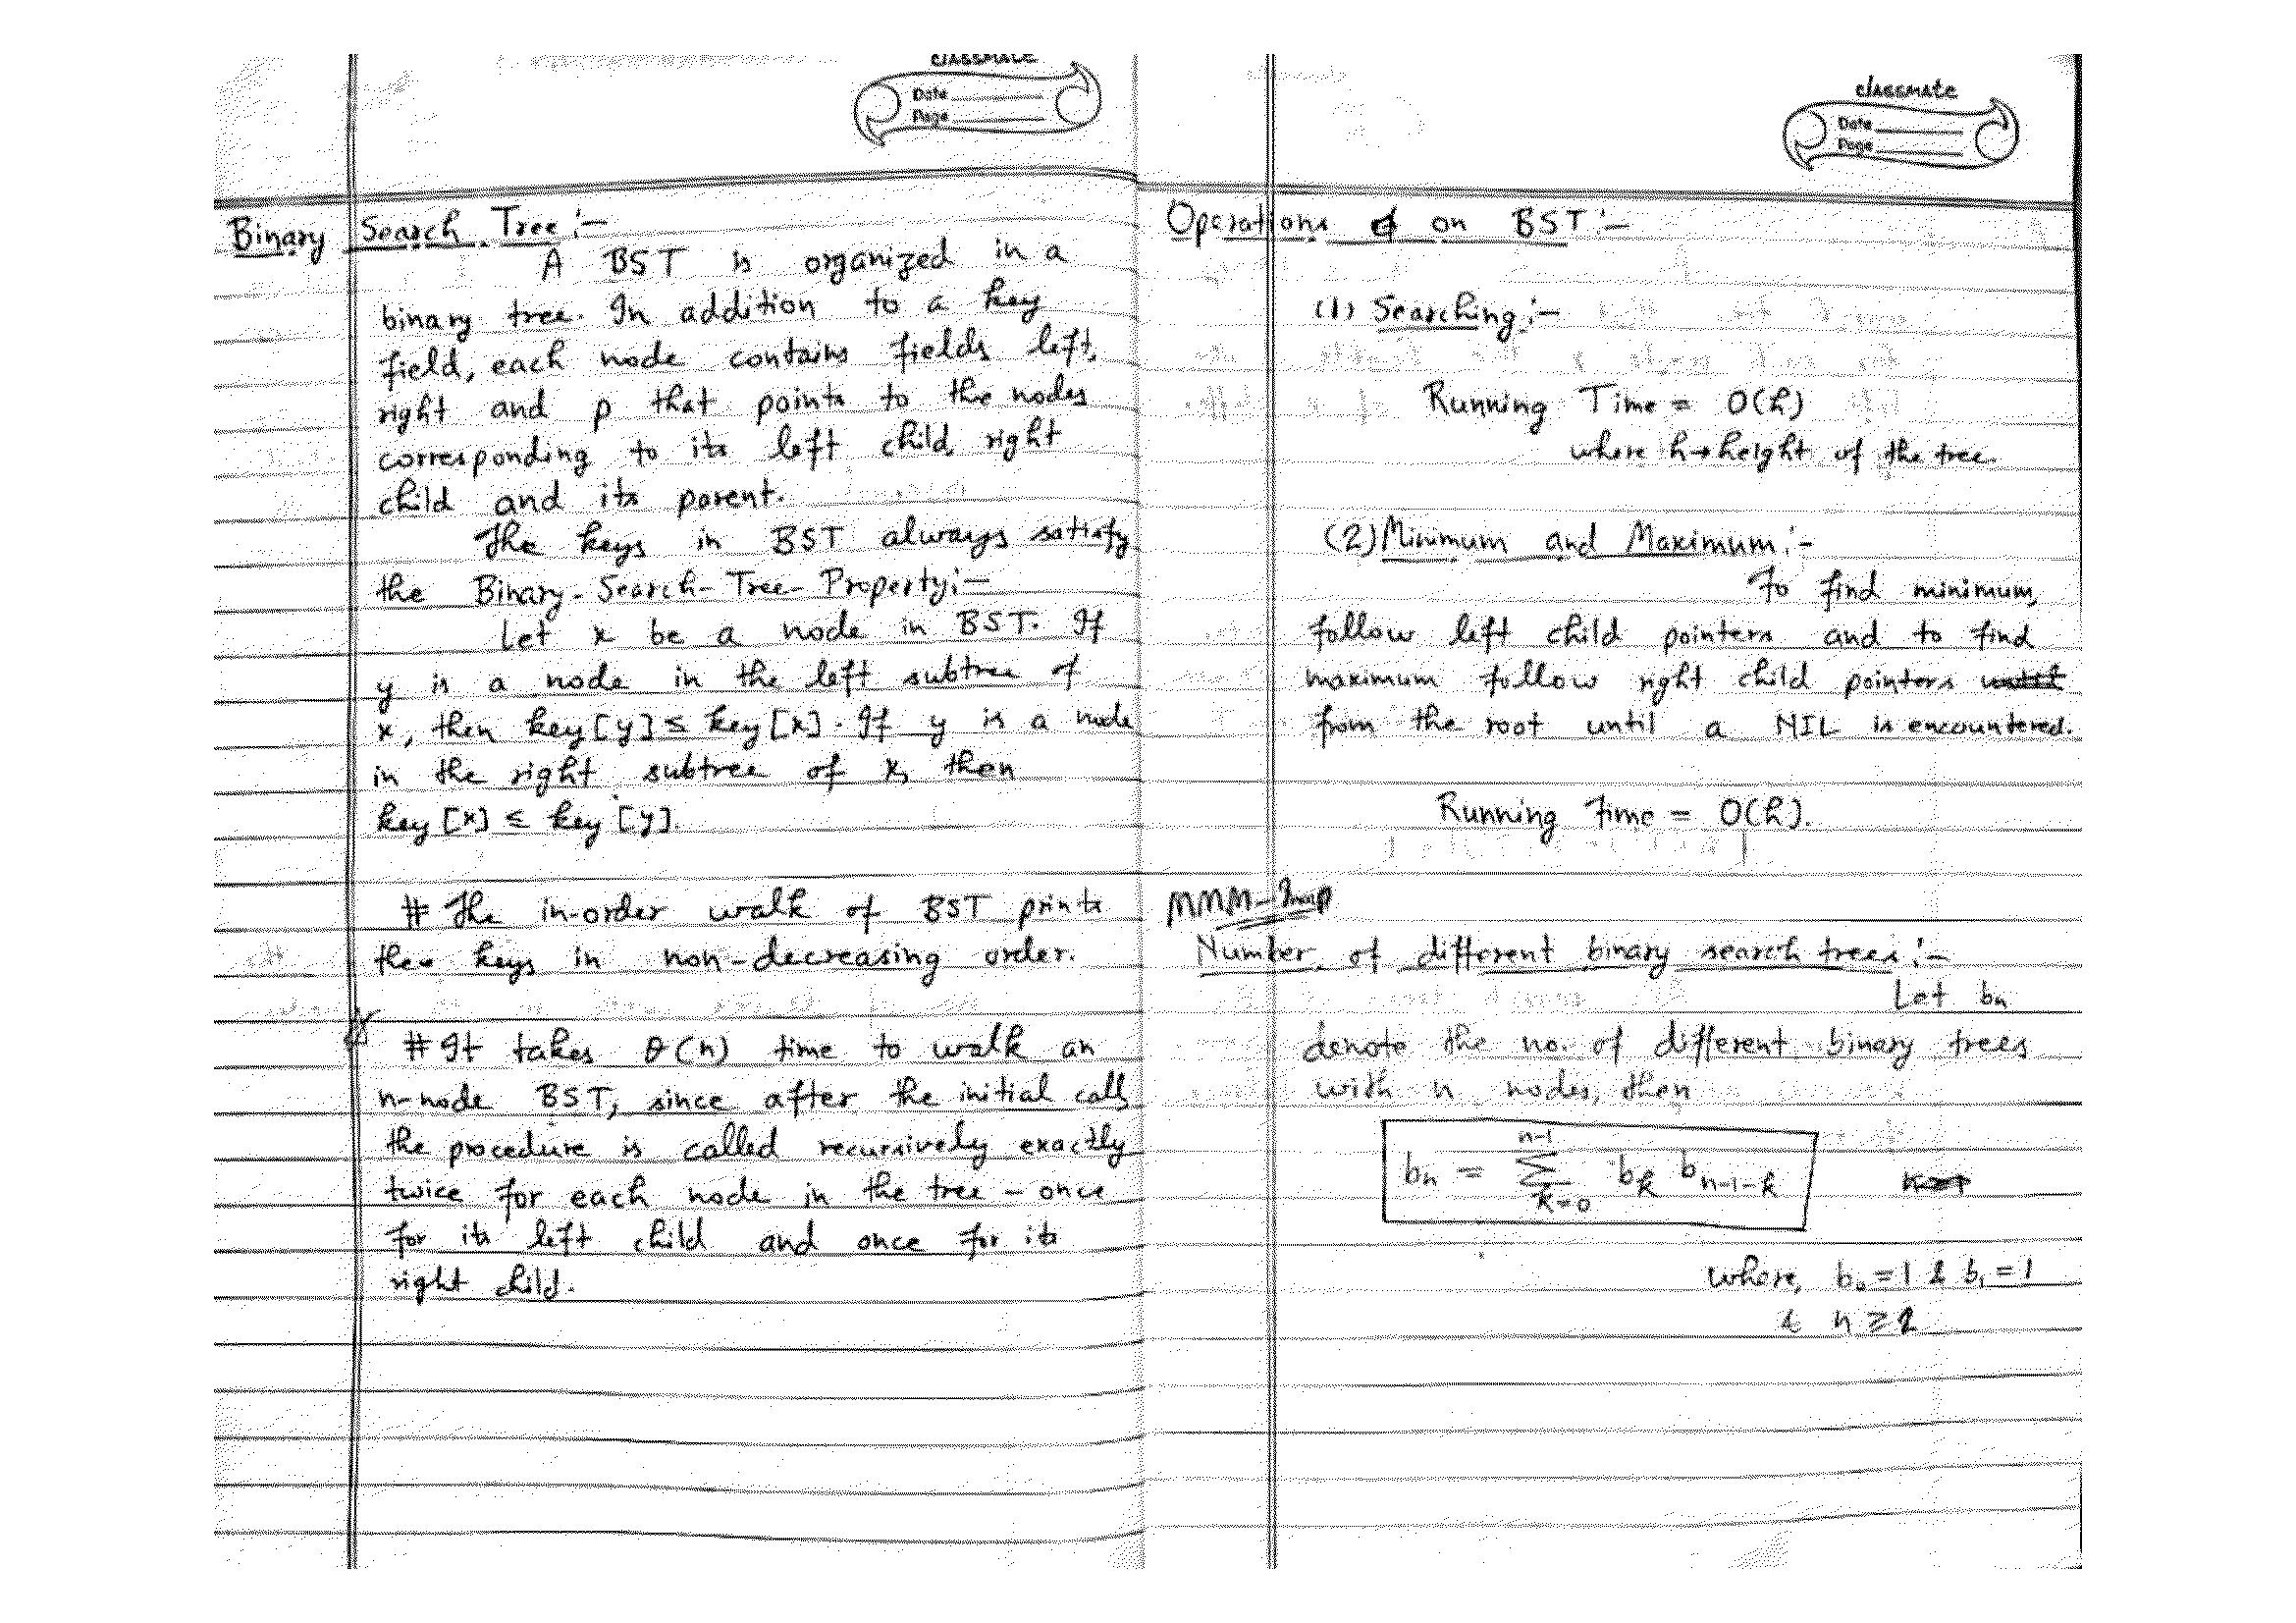 classmate
Date
Page
Binary Search Tree:-
A BST is organized in a
binary tree. In addition to a key
field, each node contains fields left,
right and p that points to the nodes
corresponding to its left child, right
child and its parent.
The keys in BST always satisfy
the Binary-Search-Tree-Property:-
Let x be a node in BST. If
y is a node in the left subtree of
x, then key[y] ≤ key[x]. If y is a node
in the right subtree of x, then
key[x] ≤ key[y].
# The in-order walk of BST prints
the keys in non-decreasing order.
# It takes θ(n) time to walk an
n-node BST, since after the initial call
the procedure is called recursively exactly
twice for each node in the tree - once
for its left child and once for its
right child.
classmate
Date
Page
Operations on BST:-
(1) Searching:-
Running Time = O(h)
where h→height of the tree.
(2) Minimum and Maximum:-
To find minimum,
follow left child pointers and to find
maximum follow right child pointers
from the root until a NIL is encountered.
Running Time = O(h).
MMM-Imp
Number of different binary search trees:-
Let bn
denote the no. of different binary trees
with n nodes, then
n-1
bn = Σ bk bn-1-k
k=0
where, b0 = 1 & b1 = 1
& n ≥ 2